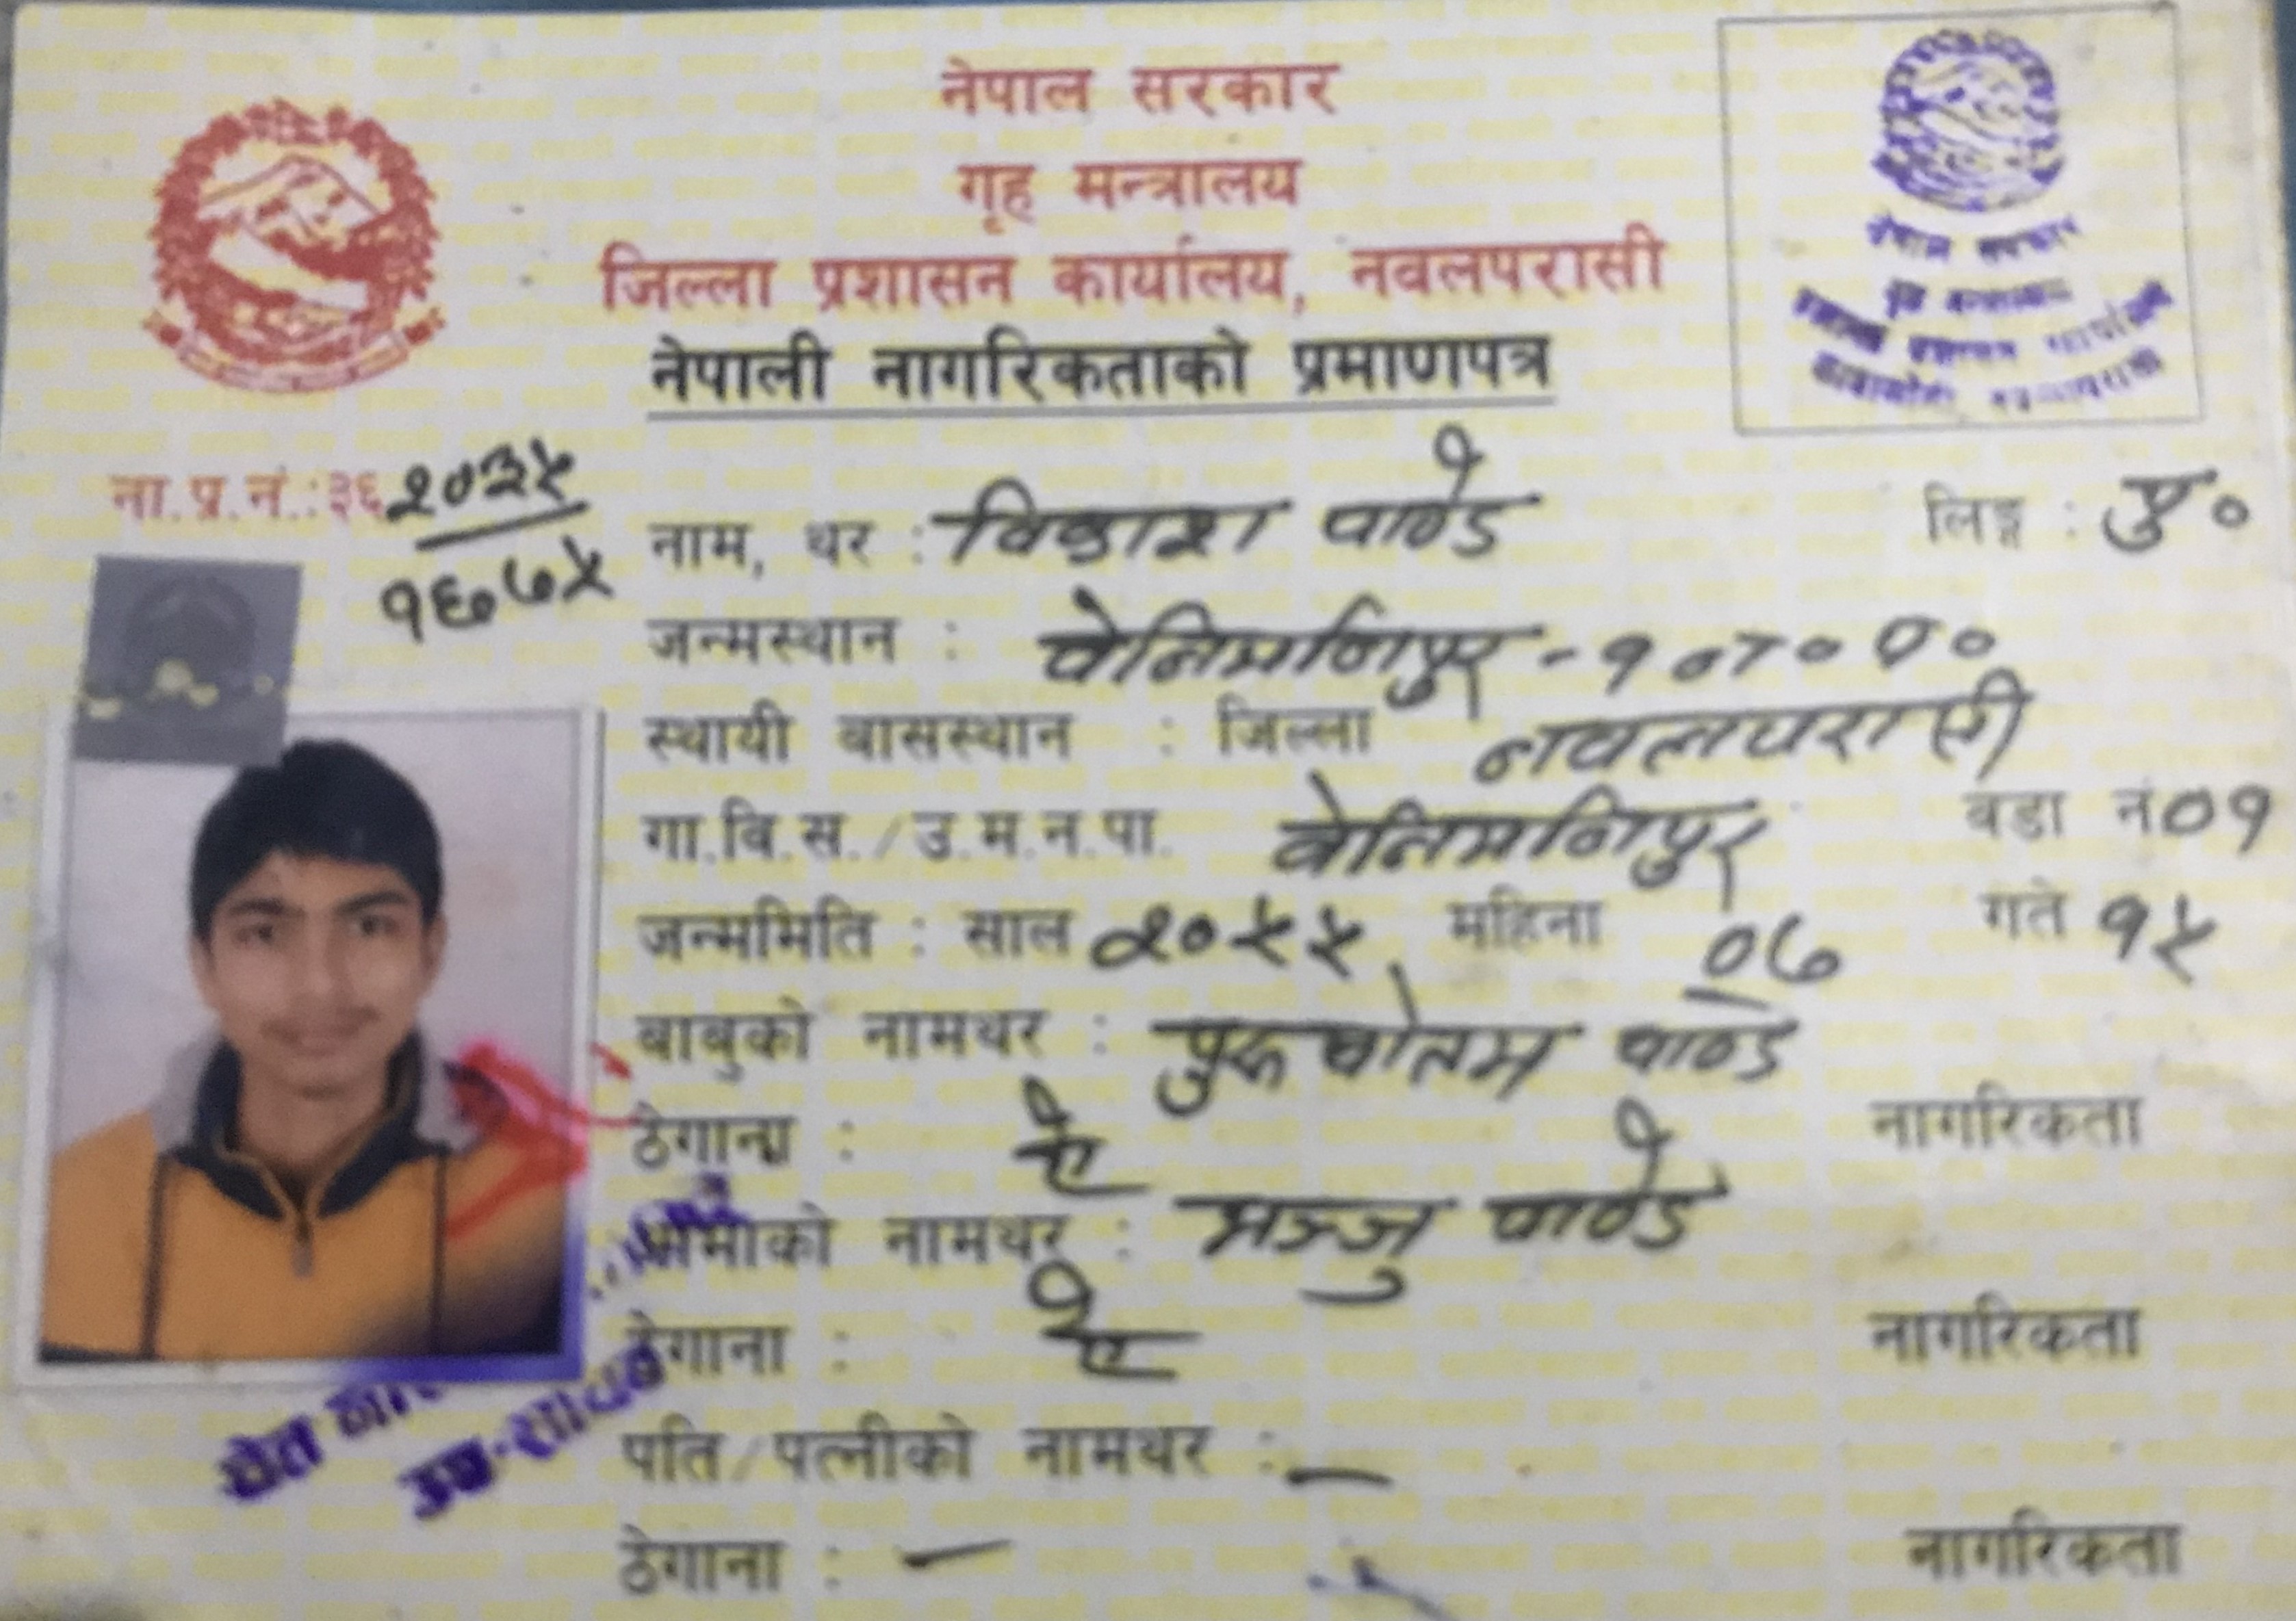 नेपाल सरकार
गृह मन्त्रालय
जिल्ला प्रशासन कार्यालय, नवलपरासी
नेपाली नागरिकताको प्रमाणपत्र
नेपाल सरकार
ना.प्र.नं.:३६ २०३५
१६७५
नाम, थर : विकाश पाण्डे
लिङ्ग : पु०
जन्मस्थान : वेनिमनिपुर - १
स्थायी बासस्थान : जिल्ला नवलपरासी
गा.वि.स./उ.म.न.पा. वेनिमनिपुर वडा नं ०१
जन्ममिति : साल २०५५ महिना ०७ गते १५
बाबुको नामथर : पुरुषोतम पाण्डे
ठेगाना : ऐ ऐ नागरिकता
आमाको नामथर : मञ्जु पाण्डे
ठेगाना : ऐ ऐ नागरिकता
पति/पत्नीको नामथर : —
ठेगाना : — नागरिकता